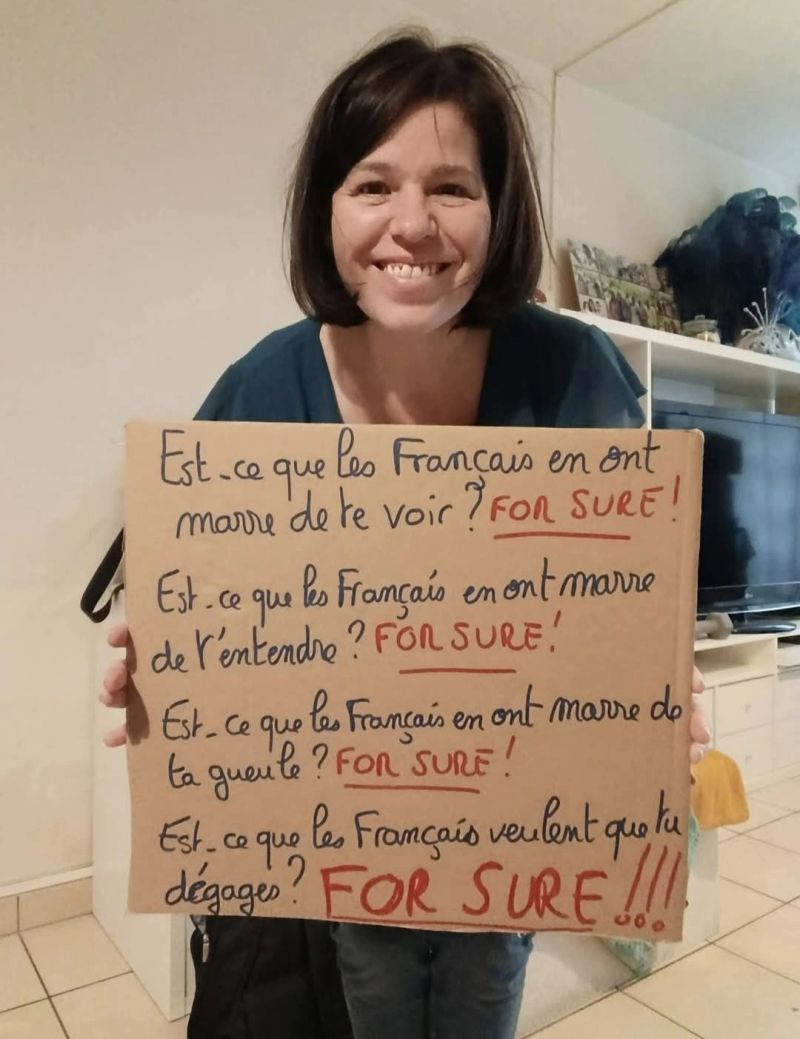 Est-ce que les Français en ont
marre de te voir ? FOR SURE !
Est-ce que les Français en ont marre
de t'entendre ? FOR SURE !
Est-ce que les Français en ont marre de
ta gueule ? FOR SURE !
Est-ce que les Français veulent que tu
dégages ? FOR SURE !!!